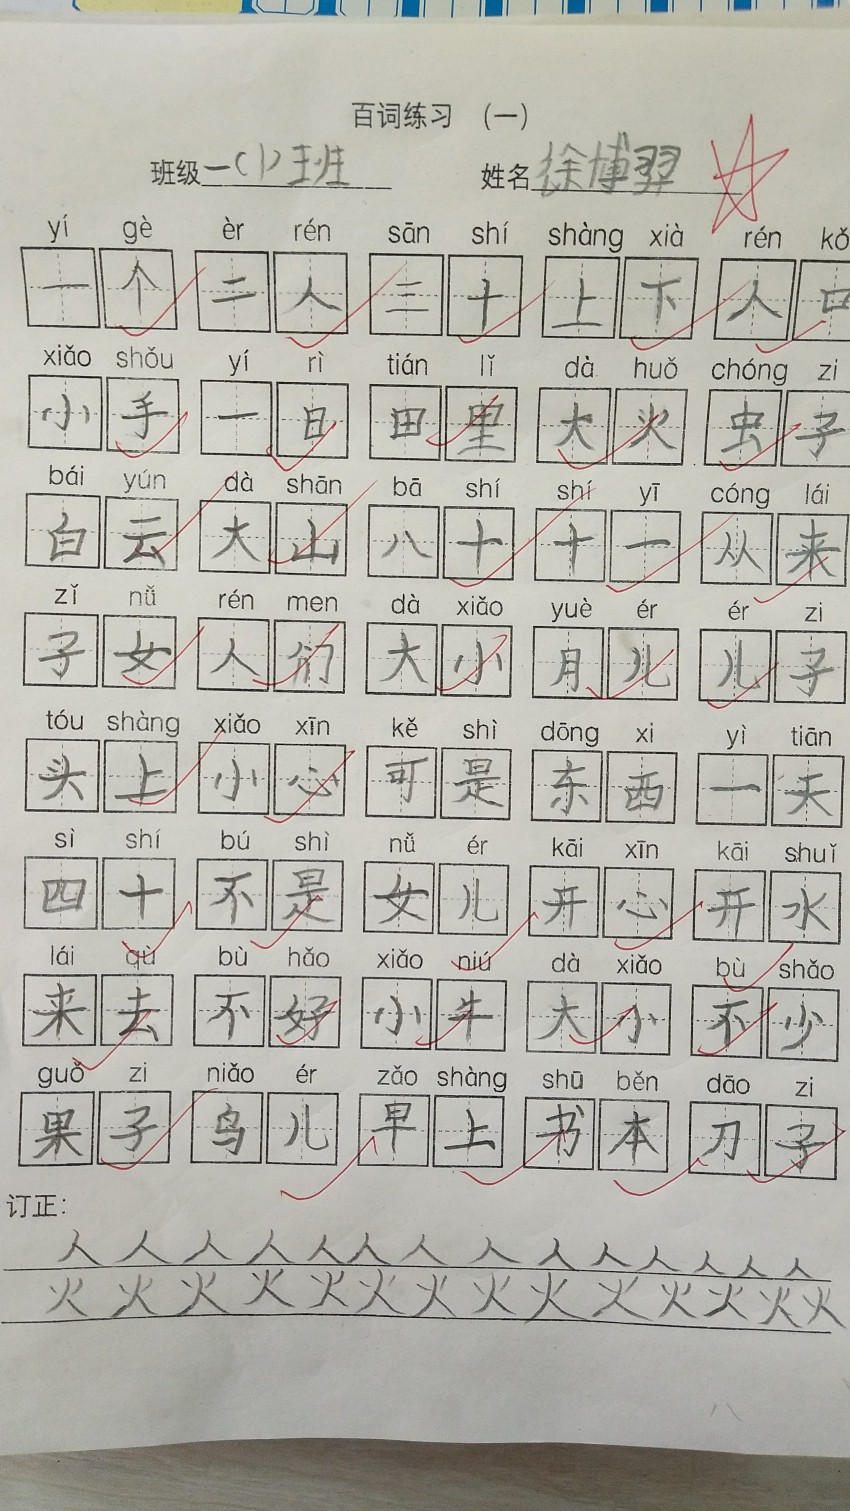 百词练习 （一）
班级一（1）班 姓名徐博羿
yí gè èr rén sān shí shàng xià rén kǒ
一个 二人 三十 上下 人口
xiǎo shǒu yí rì tián lǐ dà huǒ chóng zi
小手 一日 田里 大火 虫子
bái yún dà shān bā shí shí yī cóng lái
白云 大山 八十 十一 从来
zǐ nǚ rén men dà xiǎo yuè ér ér zi
子女 人们 大小 月儿 儿子
tóu shàng xiǎo xīn kě shì dōng xi yì tiān
头上 小心 可是 东西 一天
sì shí bú shì nǚ ér kāi xīn kāi shuǐ
四十 不是 女儿 开心 开水
lái qù bù hǎo xiǎo niú dà xiǎo bù shǎo
来去 不好 小牛 大小 不少
guǒ zi niǎo ér zǎo shàng shū běn dāo zi
果子 鸟儿 早上 书本 刀子
订正：
人 人 人 人 人 人 人 人 人 人 人 人 人 人
火 火 火 火 火 火 火 火 火 火 火 火 火 火